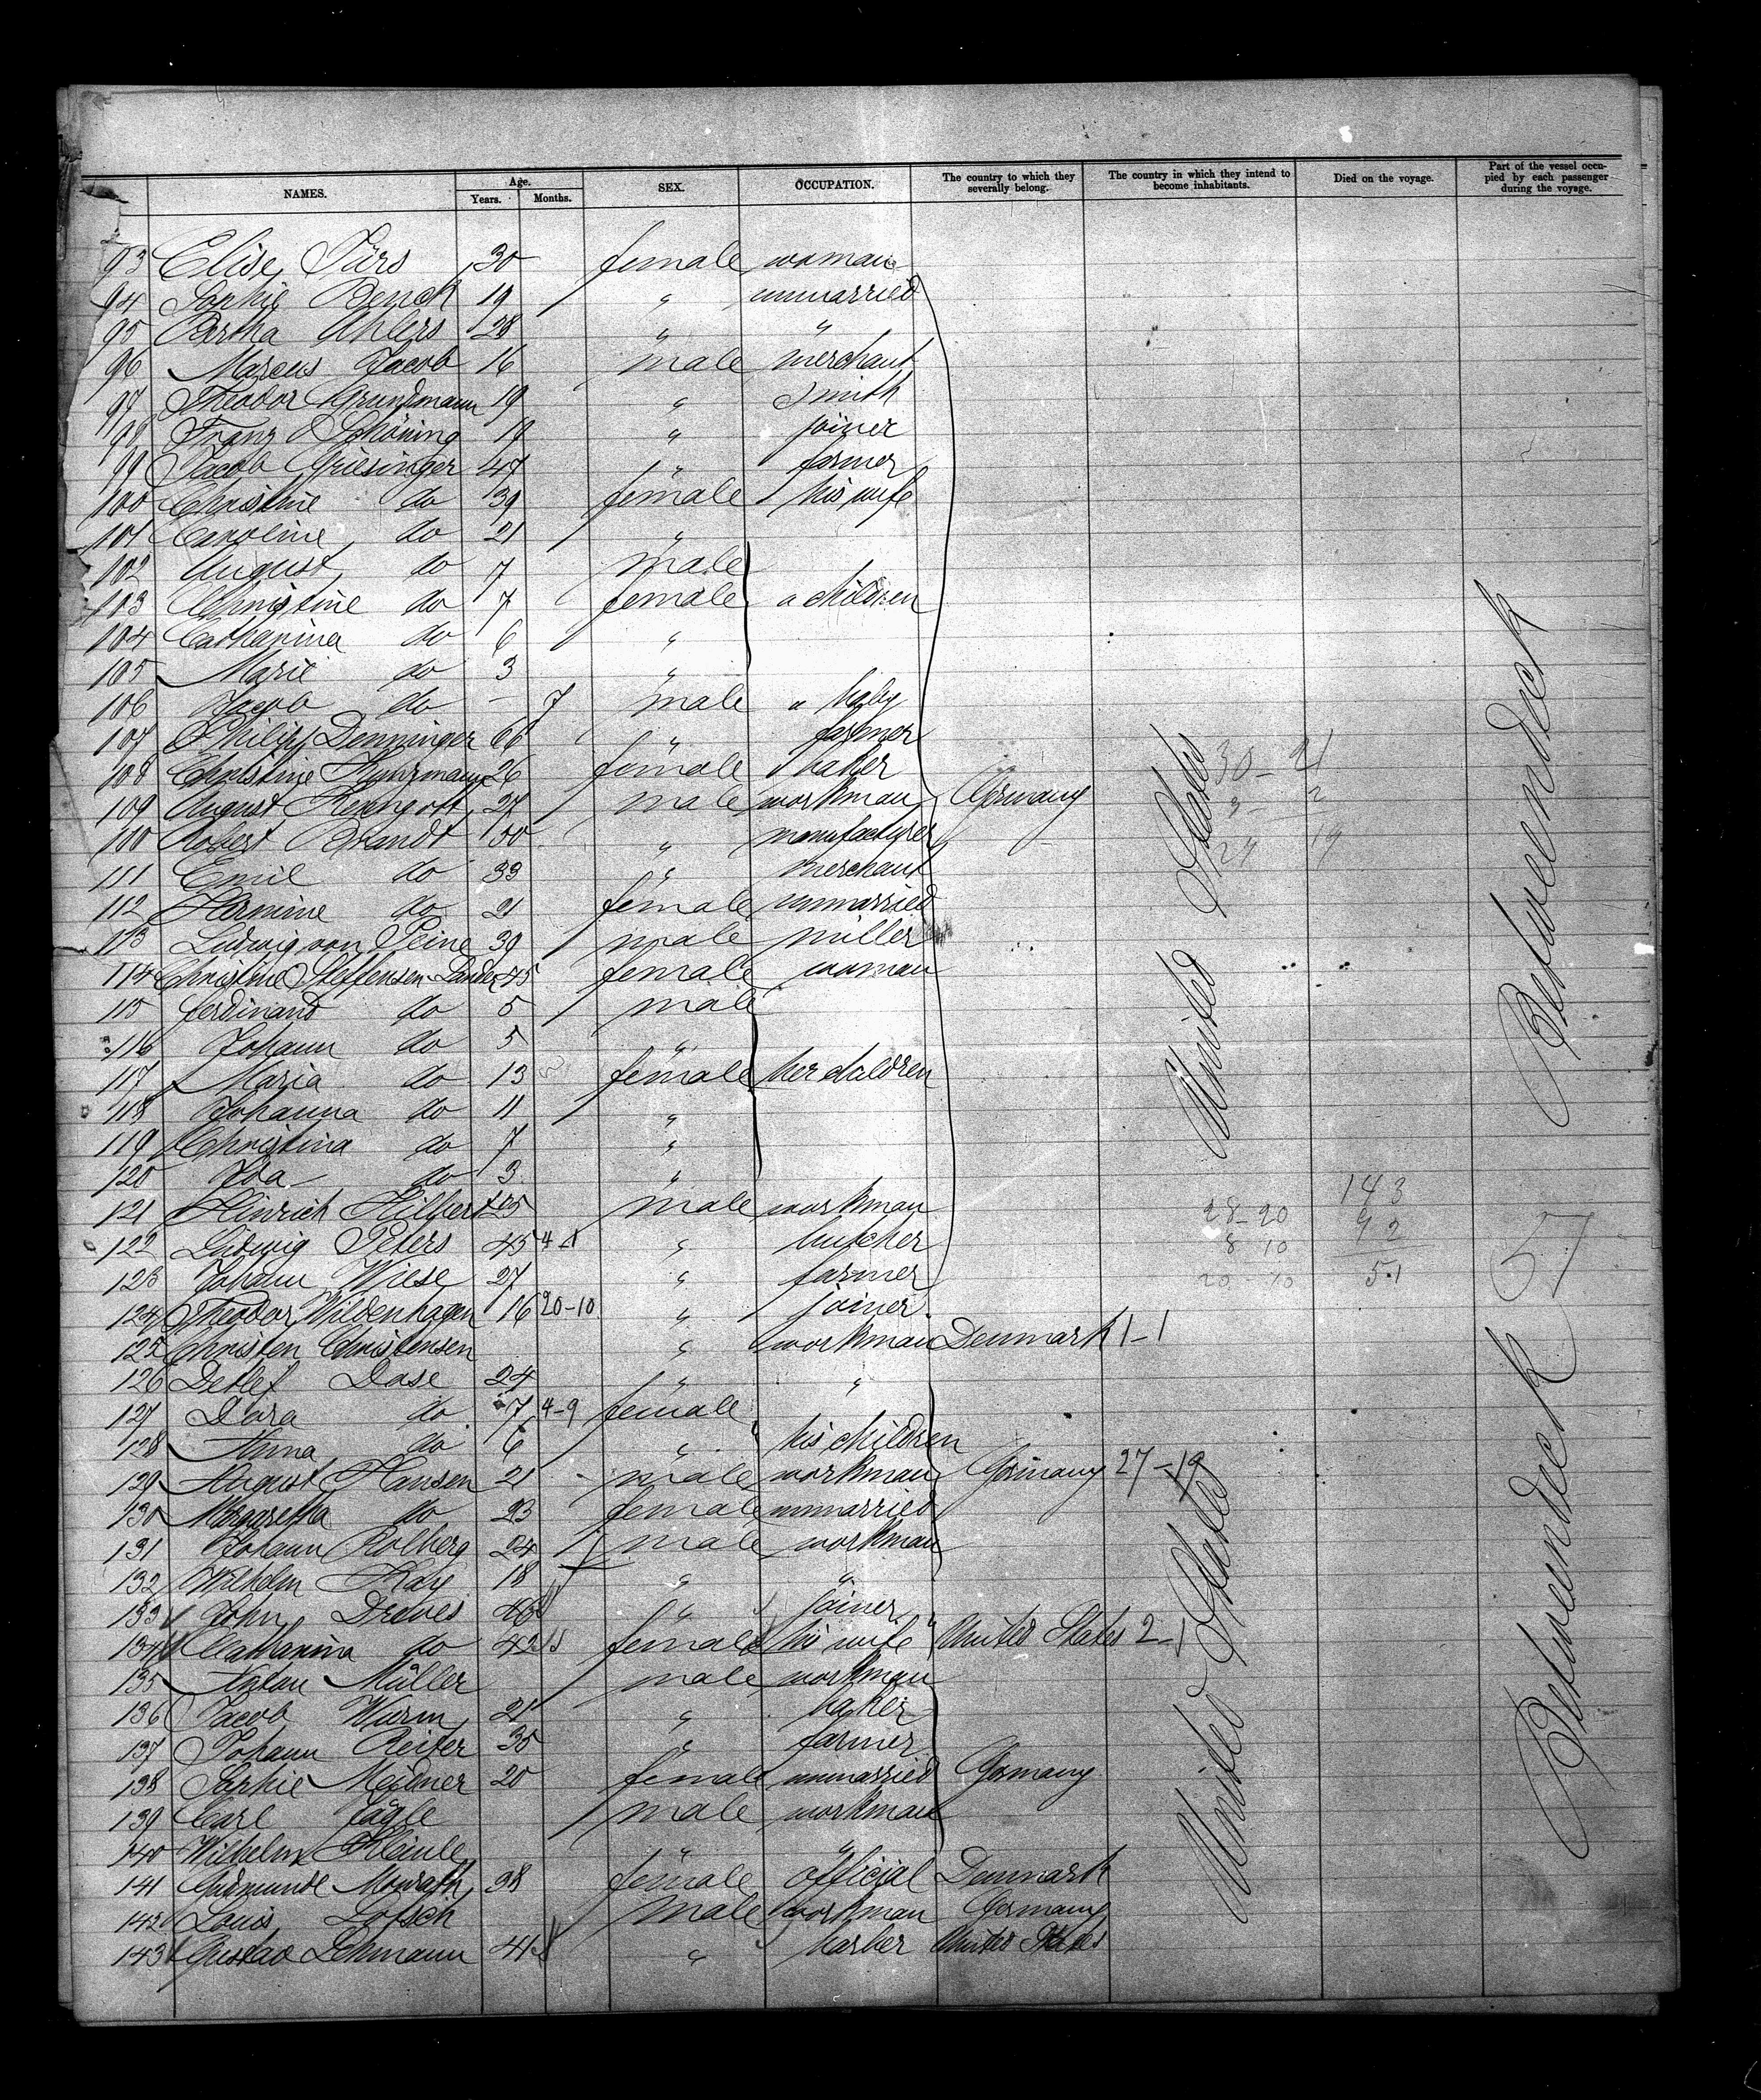 NAMES. Age. Years. Months. SEX. OCCUPATION. The country to which they severally belong. The country in which they intend to become inhabitants. Died on the voyage. Part of the vessel occupied by each passenger during the voyage.
93 Elise 30 female woman
94 Sophie Benck 19 " unmarried
95 Bertha Ahlers 28 " "
96 Marcus Jacob 16 male merchant
97 Theodor Grundmann 19 " Smith
98 Franz Schöning 19 " joiner
99 Jacob Griesinger 47 " farmer
100 Christine do 39 female his wife
101 Caroline do 21 "
102 August do 7 male
103 Christine do 7 female children
104 Catharina do 6 "
105 Marie do 3 "
106 Jacob do - 7 male " baby
107 Philipp Denninger 66 " farmer
108 Christine Kunzmann 26 female baker
109 August 27 male workman Germany
100 Robert Brandt 30 " manufacturer
111 Emil do 33 " merchant
112 Hermine do 21 female unmarried
113 Ludwig von Peine 39 male miller
114 Christine Steffensen-Lander 45 female woman
115 Ferdinand do 5 male
116 Johann do 5 "
117 Maria do 13 female her children
118 Johanna do 11 "
119 Christina do 7 "
120 Ida do 3 "
121 Hinrich Hilbert 25 male workman
122 Ludwig Peters 45 " butcher
123 Johann Wiese 27 " farmer
124 Theodor Wildenhagen 16 20-10 " joiner
125 Christen Christensen " workman Denmark 1-1
126 Detlef Dase 24 " "
127 Dora do 7 4-9 female
128 Anna do 6 " his children
129 August Hansen 21 male workman Germany 27-19
130 Margaretha do 23 female unmarried
131 Johann Rolberg 24 male workman
132 Wilhelm Kay 18 " "
133 John Dreves 46 " joiner
134 Catharina do 42 female his wife United States 2-
135 Anton Müller male workman
136 Jacob Wurm 21 " baker
137 Johann Reiter 35 " farmer
138 Sophie Meidner 20 female unmarried Germany
139 Carl Jägle male workman
140 Wilhelm " "
141 38 female official Denmark
142 Louis male workman Germany
143 Gustav Lehmann 41 " barber United States
United States
Betweendeck
30-21
28-20
8 10
20 10
143
92
51
57
United States
Betweendeck